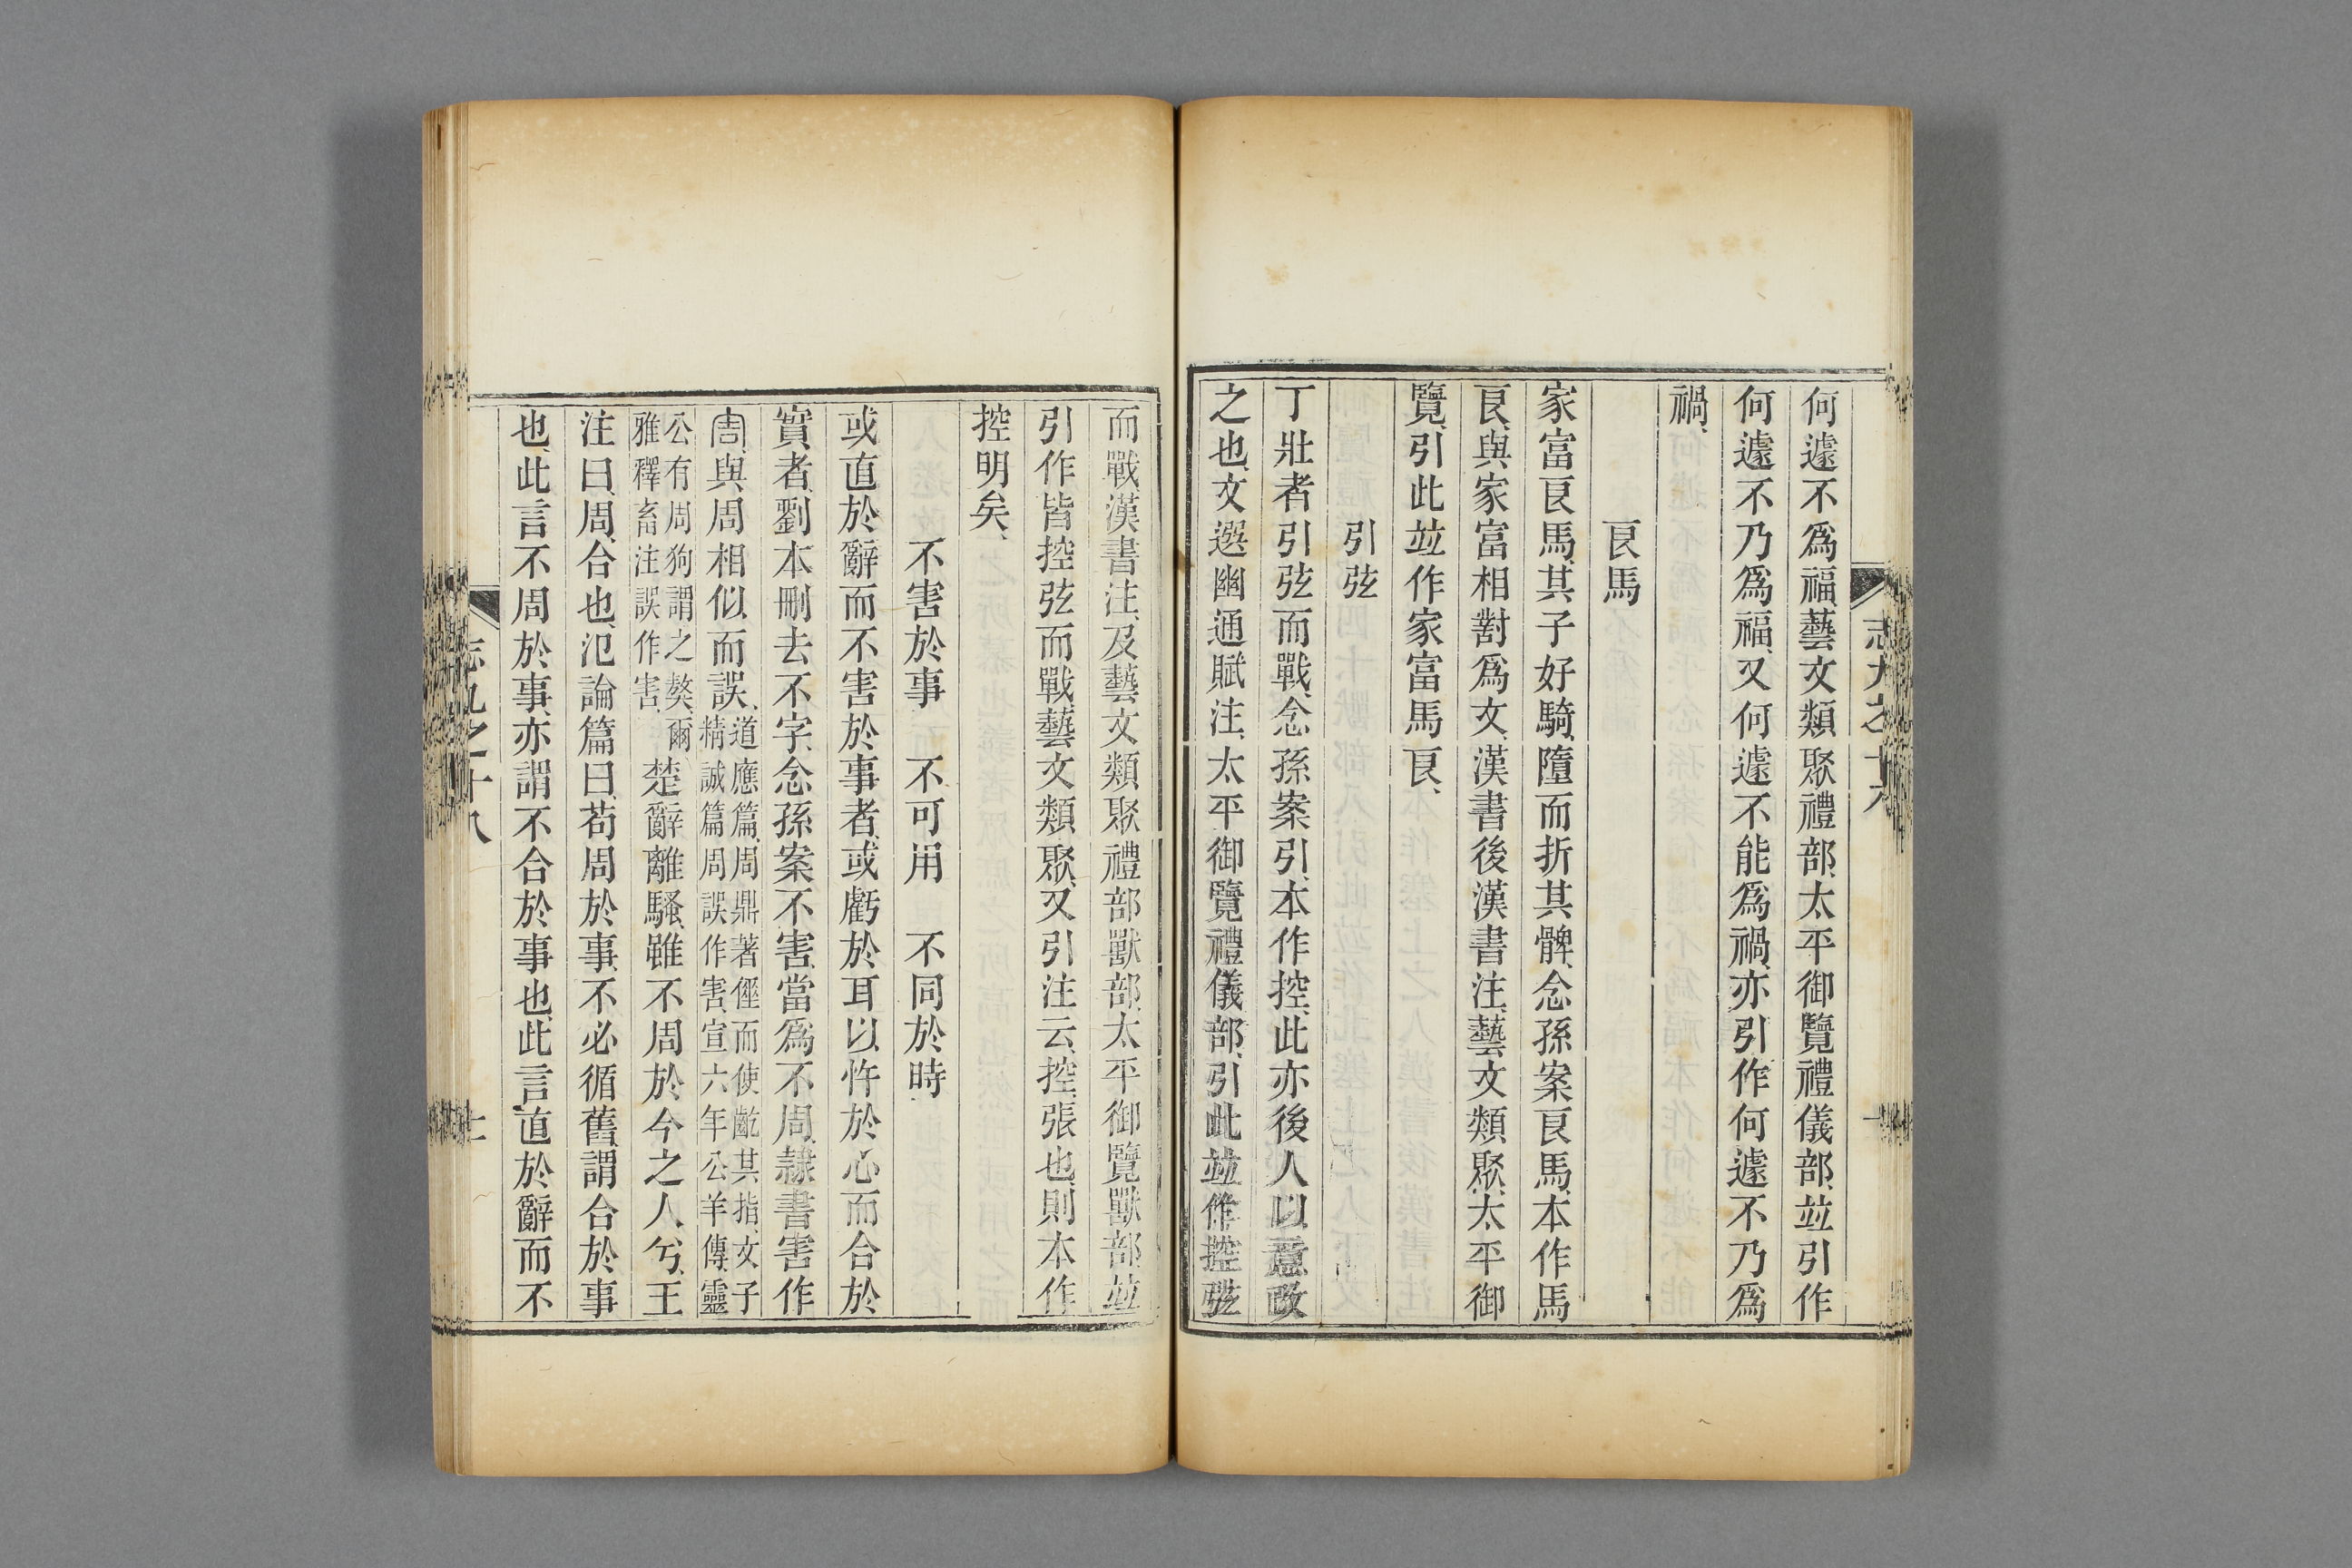 志九之十八
何遽不爲福、藝文類聚禮部、太平御覽禮儀部、並引作
何遽不乃爲福、又何遽不能爲禍、亦引作何遽不乃爲
禍、
良馬
家富良馬、其子好騎、墮而折其髀、念孫案良馬、本作馬
良、與家富相對爲文、漢書後漢書注、藝文類聚、太平御
覽、引此並作家富馬良、
引弦
丁壯者引弦而戰、念孫案引、本作控、此亦後人以意改
之也、文選幽通賦注、太平御覽禮儀部、引此並作控弦
而戰、漢書注、及藝文類聚禮部獸部、太平御覽獸部、並
引作皆控弦而戰、藝文類聚、又引注云、控、張也、則本作
控明矣、
不害於事　不可用　不同於時
或直於辭而不害於事者、或虧於耳以忤於心而合於
實者、劉本刪去不字、念孫案不害、當爲不周、隷書害作
𡧱、與周相似而誤、道應篇、周鼎著倕而使齕其指、文子精誠篇周誤作害、宣六年公羊傳、靈
公有周狗謂之獒、爾雅釋畜注誤作害、楚辭離騷、雖不周於今之人兮、王
注曰、周、合也、氾論篇曰、苟周於事、不必循舊、謂合於事
也、此言不周於事、亦謂不合於事也、此言直於辭而不
志九之十八
十一